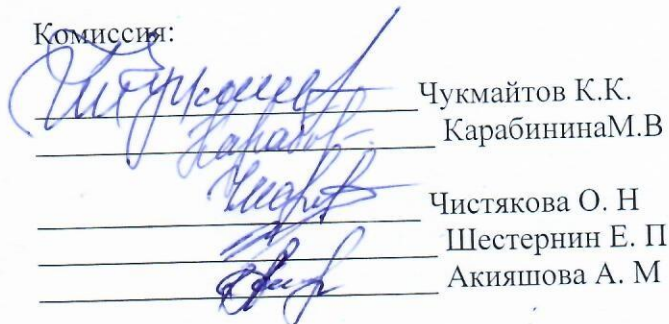 Комиссия:
Чукмайтов К.К.
КарабининаМ.В
Чистякова О. Н
Шестернин Е. П
Акияшова А. М